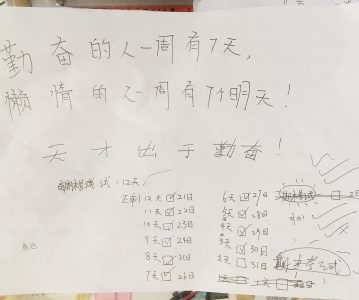 勤奋的人一周有7天,
懒惰的人一周有7个明天!
天才出于勤奋!
试:12天,
还剩 12天 21日
11天 22日
10天 23日
9天 24日
8天
7天 26日
6天 27日
5天 28日
4天 29日
3天 30日
2天 31日
期末考试